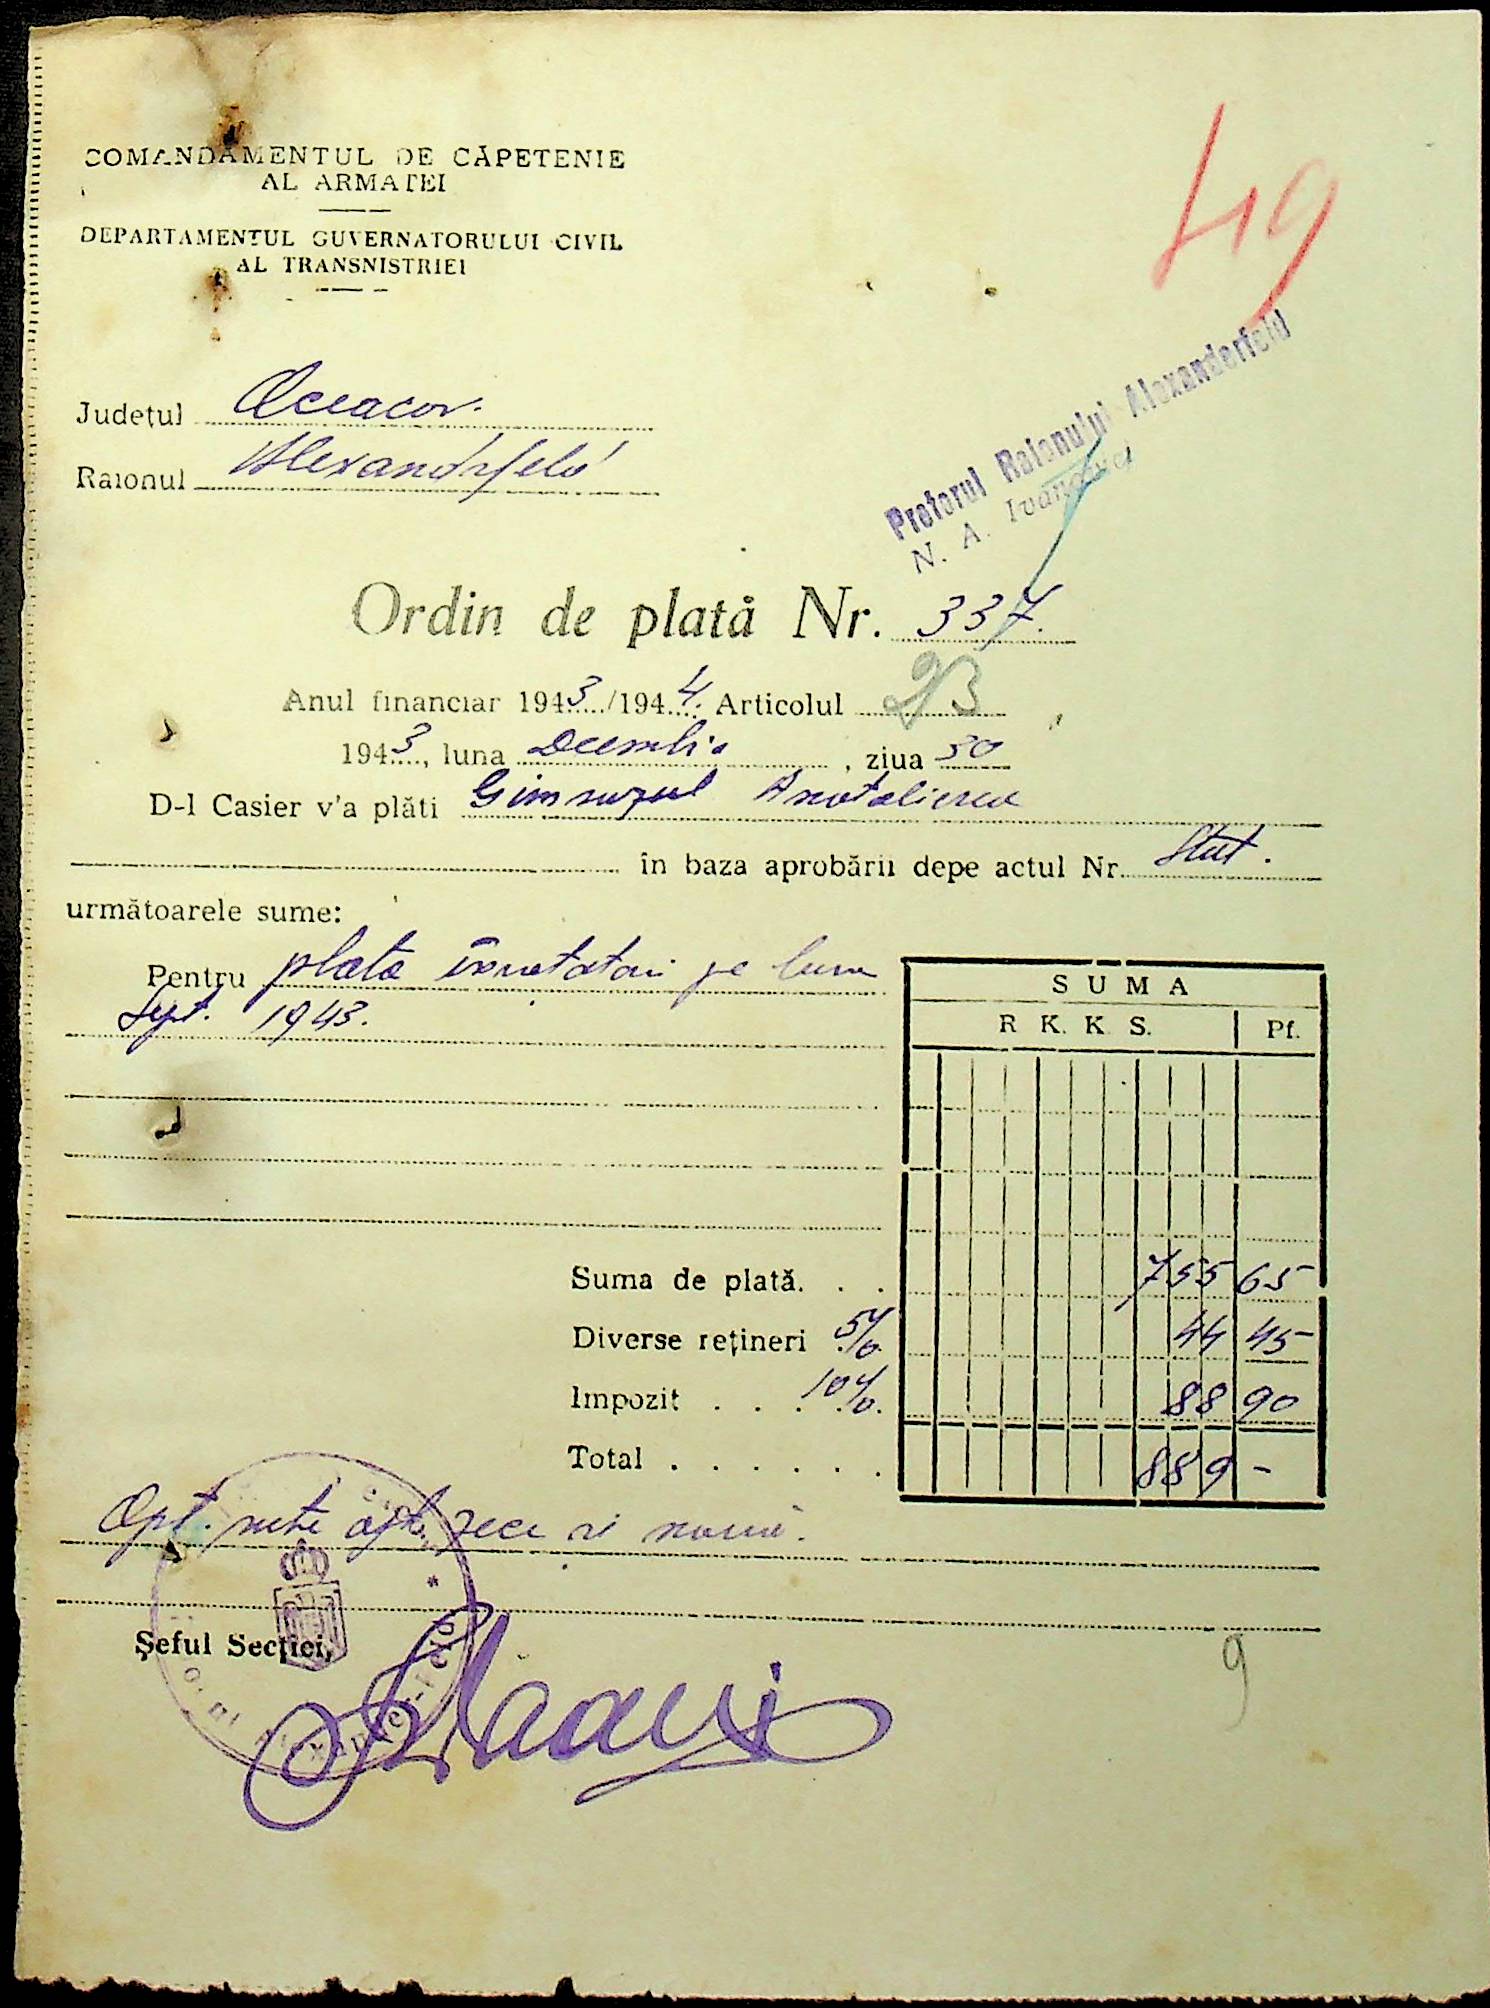 COMANDAMENTUL DE CĂPETENIE
AL ARMATEI
DEPARTAMENTUL GUVERNATORULUI CIVIL
AL TRANSNISTRIEI
49
Județul Oceacov.
Raionul Alexandrfeld
Pretorul Raionului Alexanderfeld
N. A. Ivanovici
Ordin de plată Nr. 337.
Anul financiar 1943/1944. Articolul 2/3
1943, luna Decembrie, ziua 30
D-l Casier v'a plăti Gimnazul
în baza aprobării depe actul Nr. Stat.
următoarele sume:
Pentru plata pe luna
Sept. 1943.
SUMA
R K. K S. Pf.
Suma de plată. . . 755 65
Diverse rețineri 5% 44 45
Impozit . . . 10% 88 90
Total . . . . . . . 889 -
Opt. sute opt zeci și nouă.
Șeful Secției,
9